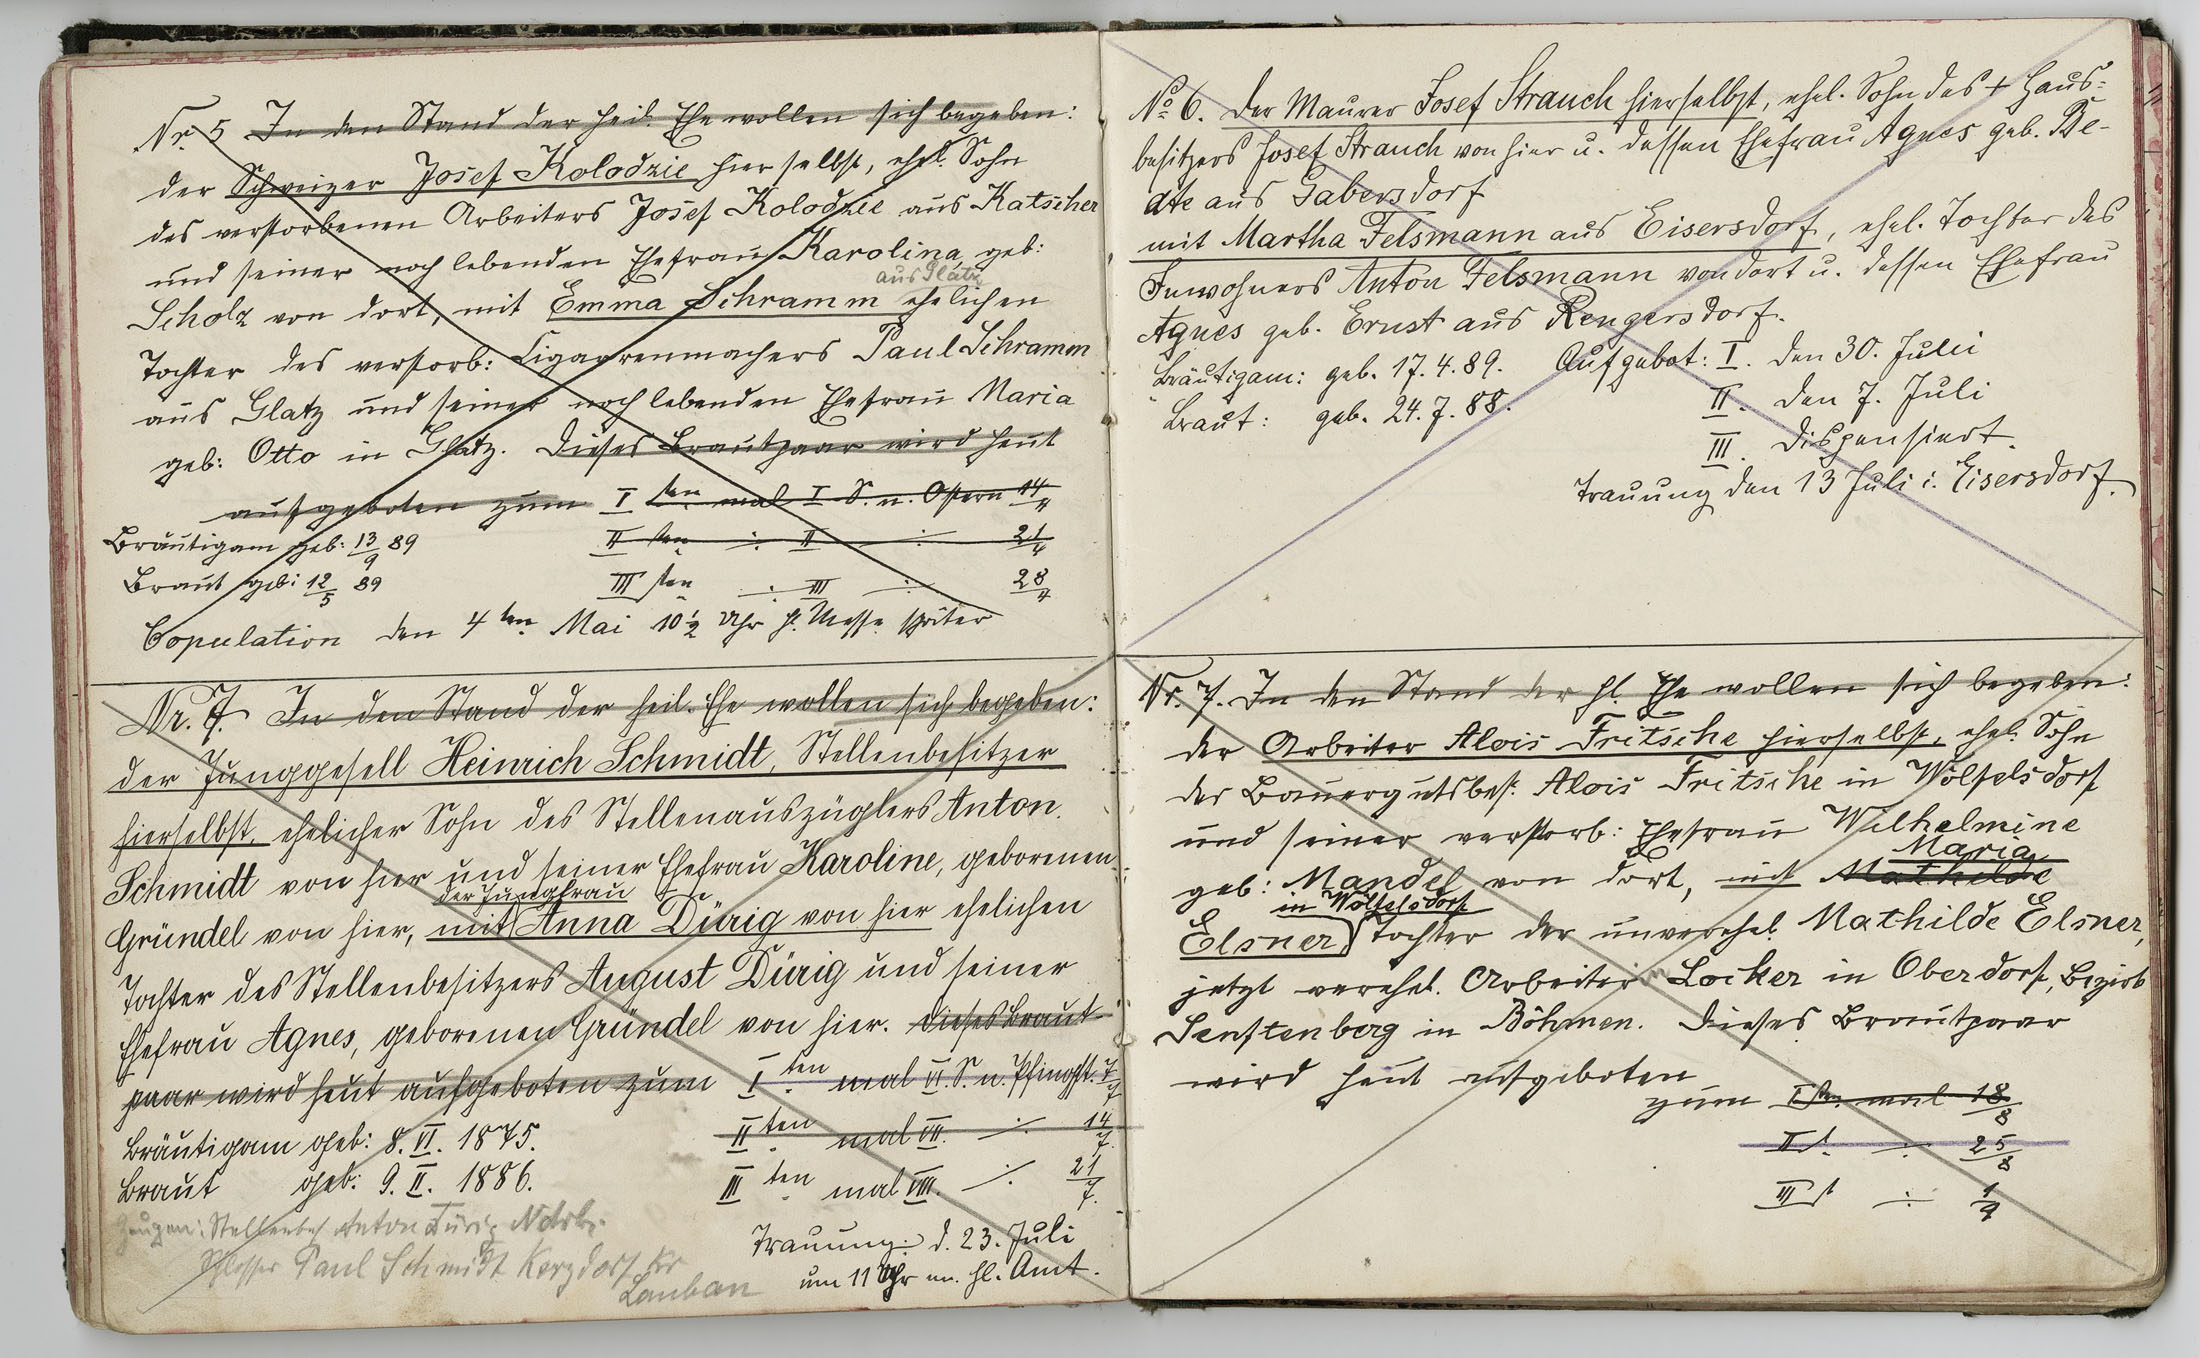 Nr. 5 In den Stand der heil. Ehe wollen sich begeben:
der Schweizer Josef Kolodzie hierselbst, ehel. Sohn
des verstorbenen Arbeiters Josef Kolodzie aus Katscher
und seiner noch lebenden Ehefrau Karolina, geb:
aus Glatz
Scholz von dort, mit Emma Schramm ehelichen
Tochter des verstorb: Cigarrenmachers Paul Schramm
aus Glatz und seiner noch lebenden Ehefrau Maria
geb: Otto in Glatz. Dieses Brautpaar wird heut
aufgeboten zum I ten mal I S. n. Ostern 14/4
Bräutigam geb: 13/9 89 II ten ·/· II ·/· 21/4
Braut geb: 12/5 89 III ten ·/· III ·/· 28/4
Copulation den 4ten Mai 10 1/2 Uhr hl. Messe später
Nr. 7. In den Stand der heil. Ehe wollen sich begeben:
der Junggesell Heinrich Schmidt, Stellenbesitzer
hierselbst, ehelicher Sohn des Stellenauszüglers Anton
Schmidt von hier und seiner Ehefrau Karoline, geborenen
der Jungfrau
Gründel von hier, mit Anna Dürig von hier ehelichen
Tochter des Stellenbesitzers August Dürig und seiner
Ehefrau Agnes, geborenen Gründel von hier. Dieses Braut-
paar wird heut aufgeboten zum I ten mal VI. S. n. Pfingst. 7/7
Bräutigam geb: 8. VI. 1875. II ten mal VII. ·/· 14/7.
Braut geb: 9. II. 1886. III ten mal VIII. ·/· 21/7.
Zeugen: Stellenbes Anton Dürig
Schlosser Paul Schmidt Kerzdorf Kr
Lauban
Trauung: d. 23. Juli
um 11 Uhr m. hl. Amt.
No 6. Der Maurer Josef Strauch hierselbst, ehel. Sohn des + Haus-
besitzers Josef Strauch von hier u. dessen Ehefrau Agnes geb. Be-
dte aus Gabersdorf
mit Martha Felsmann aus Eisersdorf, ehel. Tochter des
Inwohners Anton Felsmann von dort u. dessen Ehefrau
Agnes geb. Ernst aus Rengersdorf.
Bräutigam: geb. 17.4.89. Aufgebot: I. den 30. Juni
Braut: geb. 24.7.88. II. den 7. Juli
III. dispensiert.
Trauung den 13 Juli i. Eisersdorf.
Nr. 7. In den Stand der hl. Ehe wollen sich begeben:
der Arbeiter Alois Fritsche hierselbst, ehel. Sohn
des Bauergutsbes. Alois Fritsche in Wölfelsdorf
und seiner verstorb: Ehefrau Wilhelmine
Maria
geb: Mandel von dort, mit Mathilde
in Wölfelsdorf
Elsner Tochter der unverehel. Mathilde Elsner,
jetzt verehel. Arbeiter Locker in Oberdorf, Bezirk
Senftenberg in Böhmen. Dieses Brautpaar
wird heut aufgeboten
zum I ten mal 18/8
II t. ·/· 25/8
III t ·/· 1/9